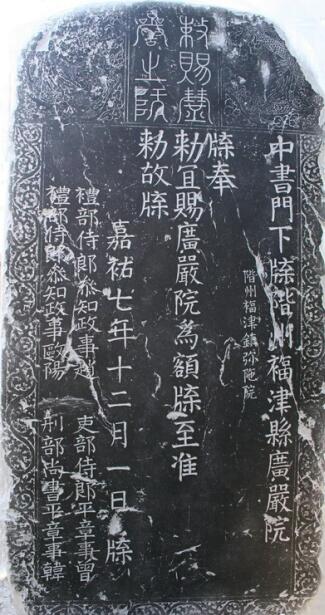 敕賜廣
嚴之院
中書門下牒階州福津縣廣嚴院
階州福津鎮弥陁院
牒奉
勑宜賜廣嚴院為額牒至准
勑故牒
嘉祐七年十二月一日 牒
禮部侍郎叅知政事趙 吏部侍郎平章事曾
禮部侍郎叅知政事歐陽 刑部尚書平章事韓